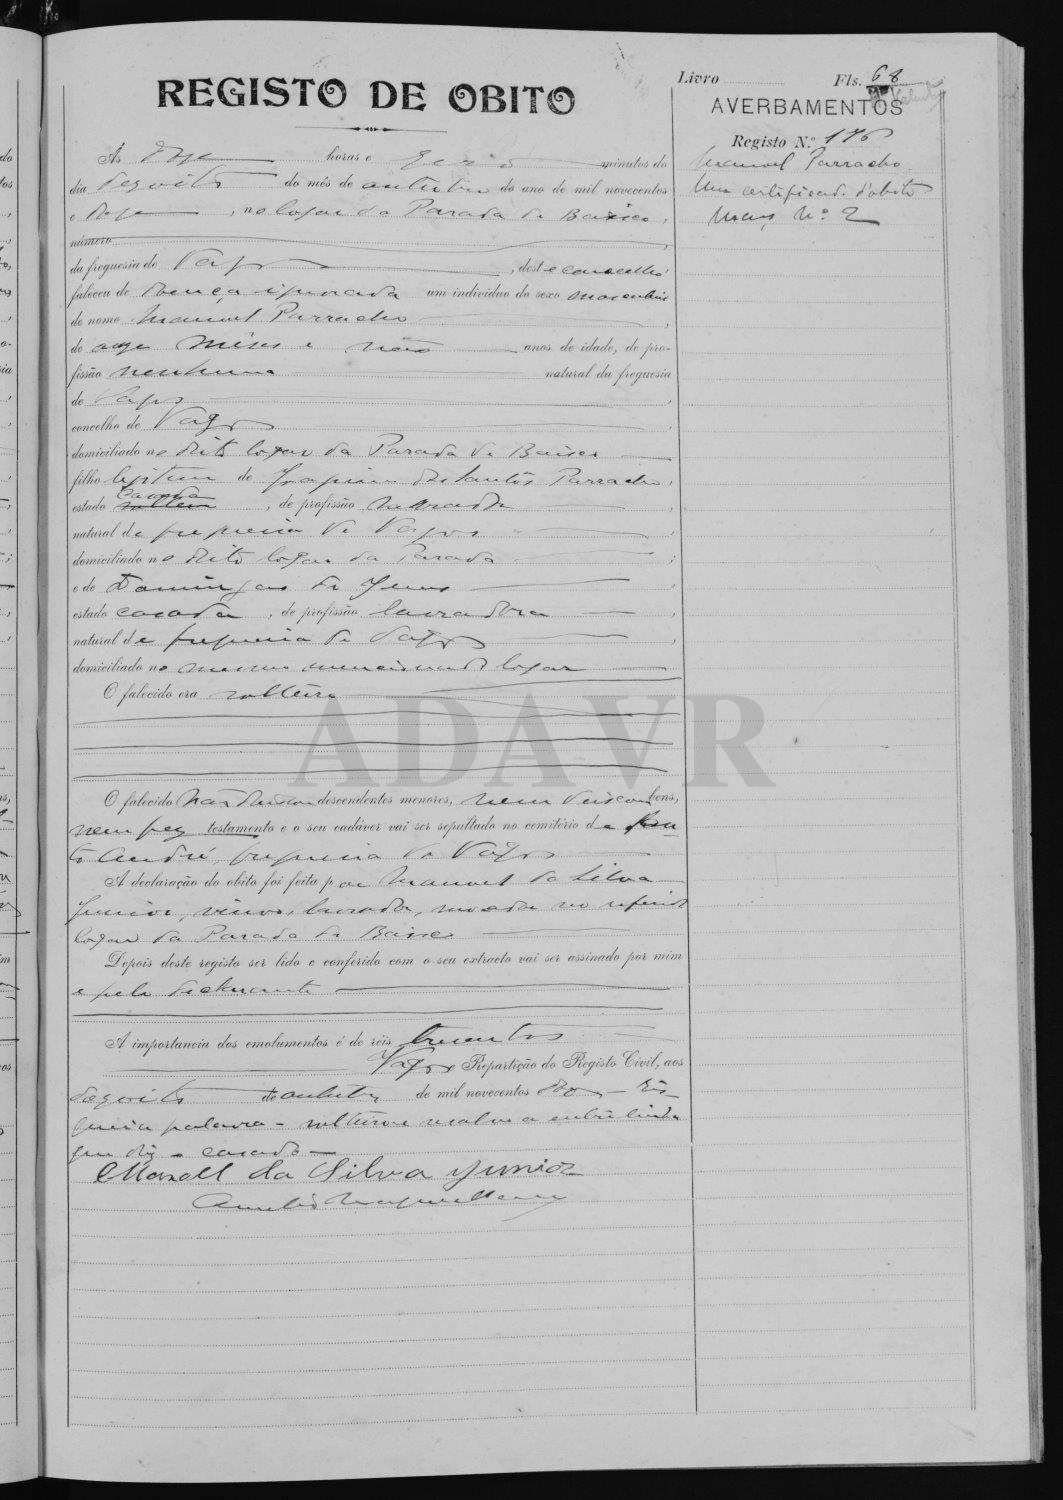 Livro Fls. 68
REGISTO DE OBITO
AVERBAMENTOS
Registo N.º 176
Manuel Parracho
Um certificado d'obito
Maço N.º 2
Ás doze horas e zero minutos do
dia dezoito do mês de outubro do ano de mil novecentos
e doze, no logar da Parada de Baixo,
número
da freguesia de Vagos, deste concelho
faleceu de doença ignorada um individuo do sexo masculino
de nome Manuel Parracho
de onze mêses e não anos de idade, de pro-
fissão nenhuma natural da freguesia
de Vagos
concelho de Vagos
domiciliado no dito logar da Parada de Baixo
filho legitimo de Joaquim dos Santos Parracho,
estado casado solteiro, de profissão
natural da freguesia de Vagos
domiciliado no dito logar da Parada
e de Domingas de Jesus
estado casada, de profissão lavradora
natural da freguesia de Vagos
domiciliado no mesmo mencionado logar
O falecido era solteiro
ADAVR
O falecido não deixou descendentes menores, nem deixou bens,
nem fez testamento e o seu cadáver vai ser sepultado no cemitério de San-
to André, freguesia de Vagos
A declaração do obito foi feita por Manuel da Silva
Junior, viuvo, lavrador, morador no referido
logar da Parada de Baixo
Depois deste registo ser lido e conferido com o seu extracto vai ser assinado por mim
e pelo declarante
A importancia dos emolumentos é de réis trezentos
Vagos Repartição do Registo Civil, aos
dezoito de outubro de mil novecentos doze - Ris-
quei a palavra - solteiro e ressalvo a entrelinha
que diz - casado -
Manoel da Silva Junior